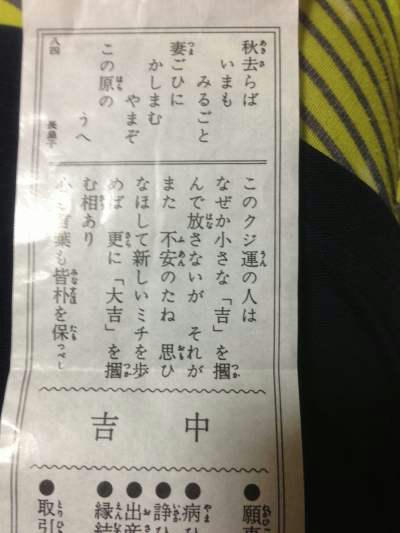 秋去らば
いまも
みるごと
妻ごひに
かしまむ
やまぞ
この原の
うへ
八四 長皇子
このクジ運の人は
なぜか小さな「吉」を掴
んで放さないが それが
また 不安のたね 思ひ
なほして新しいミチを歩
めば 更に「大吉」を掴
む相あり
心も言葉も皆朴を保つべし
中吉
●願事
●病ひ
●諍ひ
●出産
●縁結
●取引